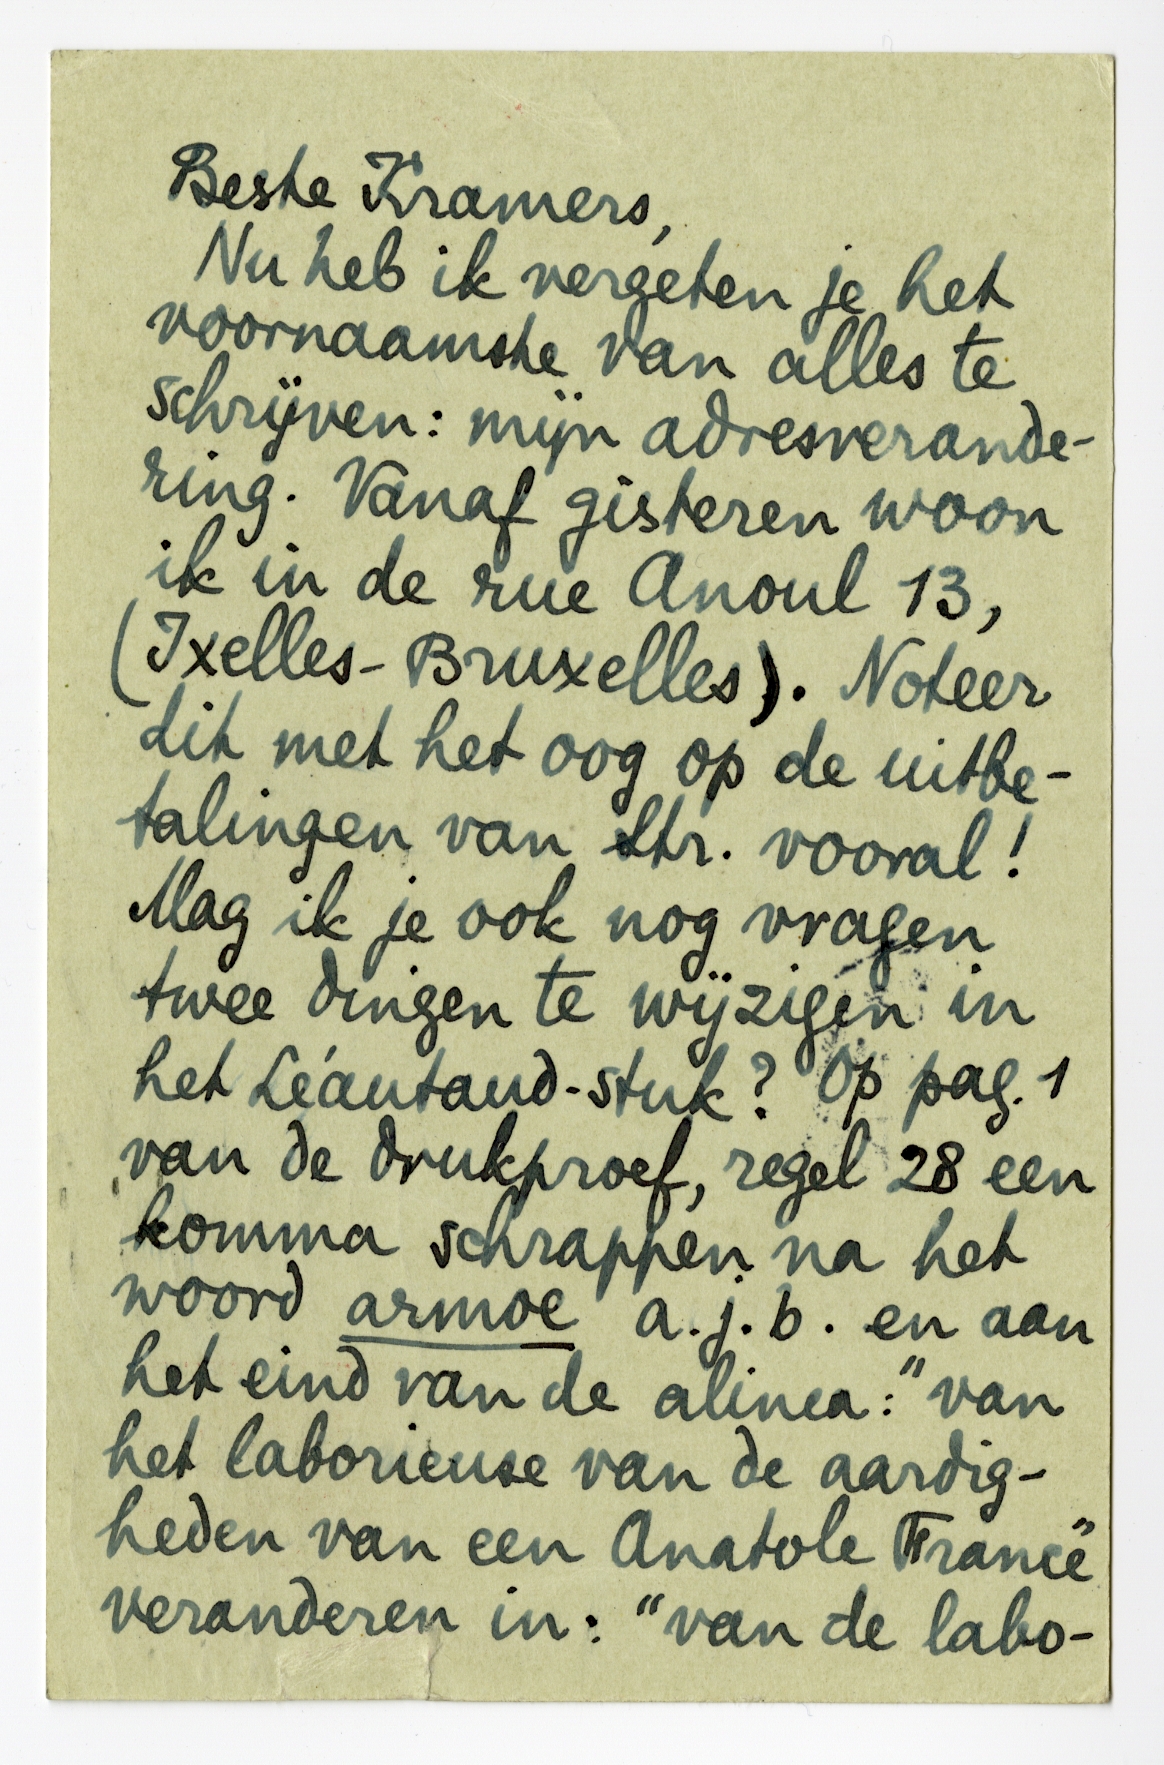 Beste Kramers,
Nu heb ik vergeten je het
voornaamste van alles te
schrijven: mijn adresverande-
ring. Vanaf gisteren woon
ik in de rue Anoul 13,
(Ixelles-Bruxelles). Noteer
dit met het oog op de uitbe-
talingen van Str. vooral!
Mag ik je ook nog vragen
twee dingen te wijzigen in
het Léautaud-stuk? Op pag. 1
van de drukproef, regel 28 een
komma schrappen na het
woord armoe a.j.b. en aan
het eind van de alinea: "van
het laborieuse van de aardig-
heden van een Anatole France"
veranderen in: "van de labo-